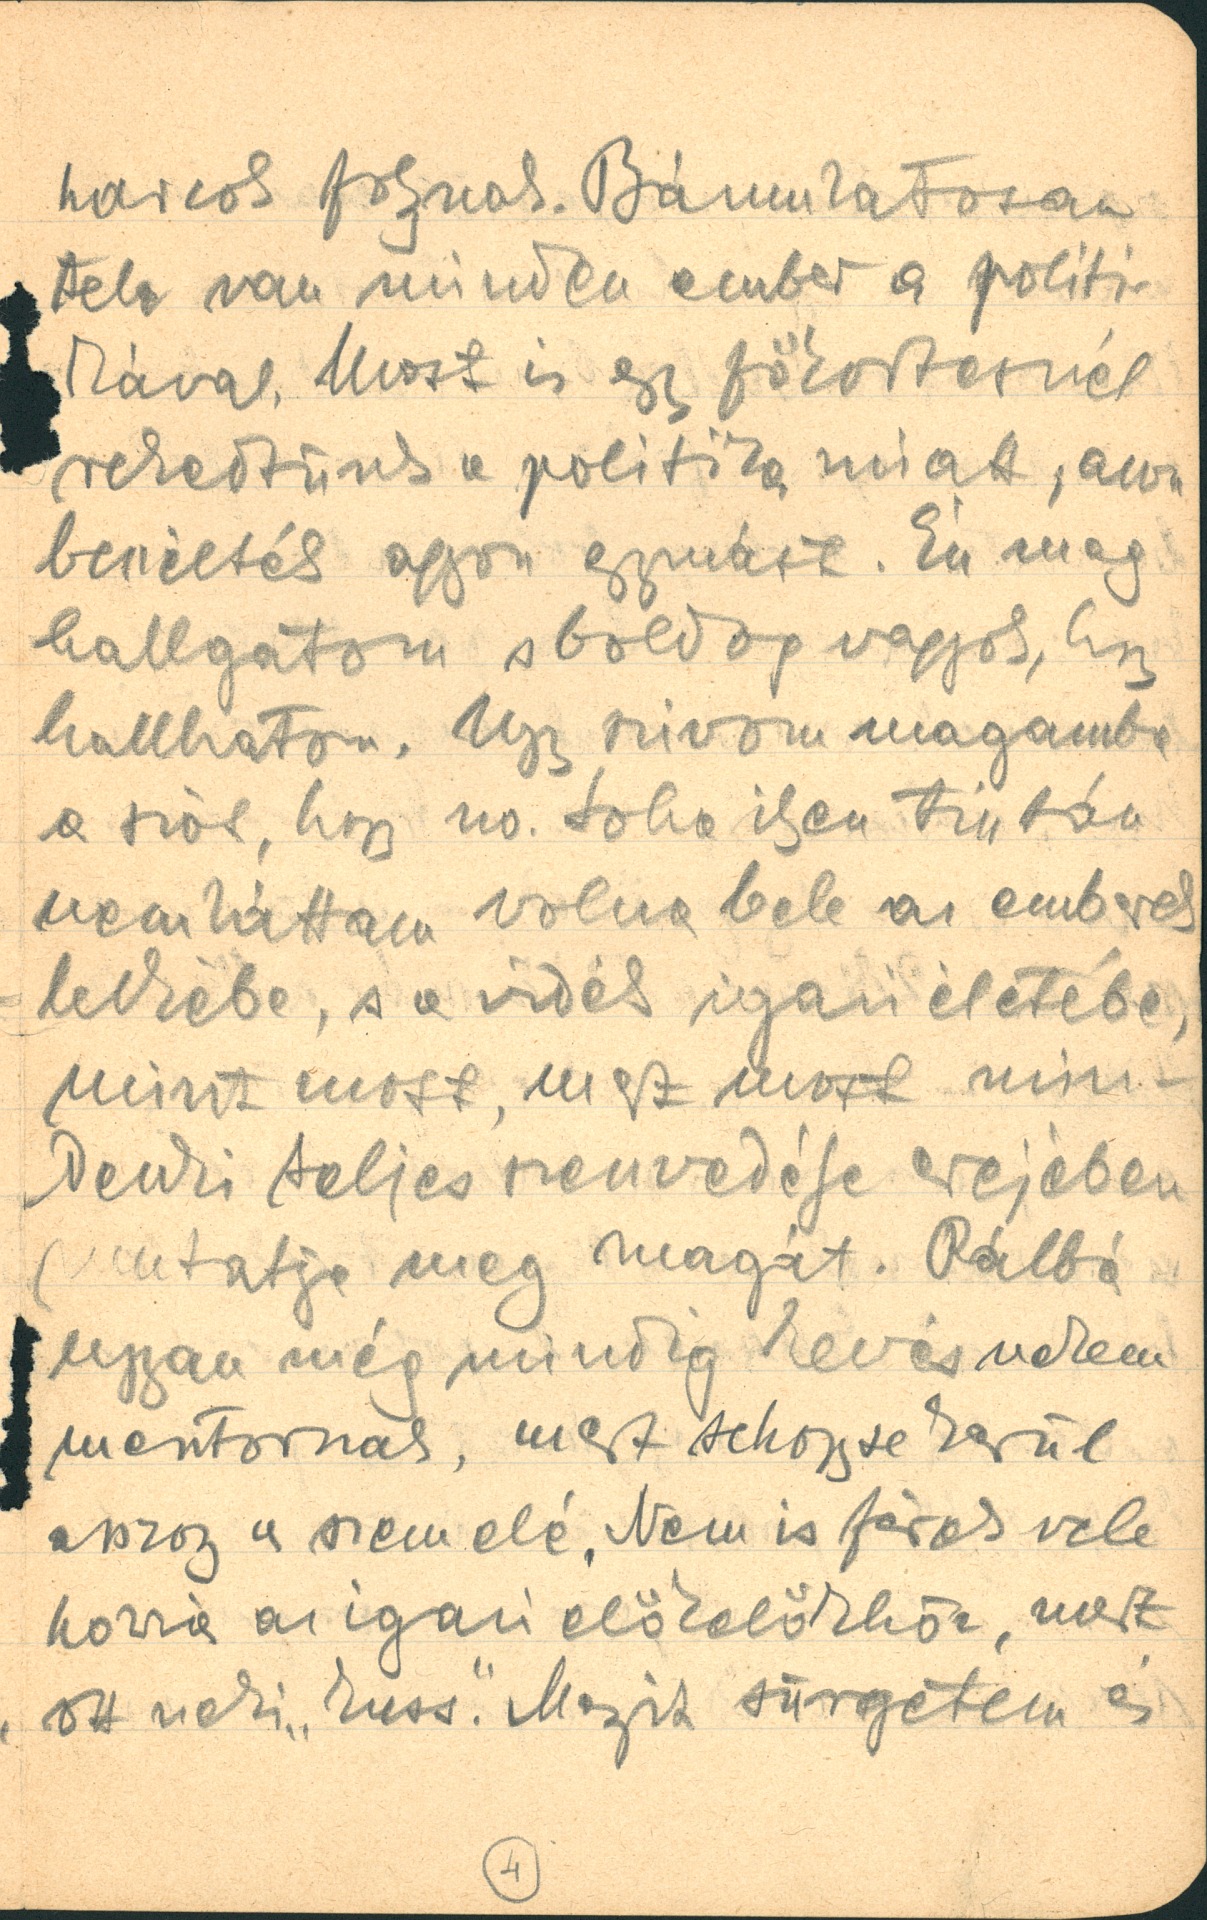 harcok folynak. Bámulatosan
tele van minden ember a politi-
kával. Most is egy főkortesnél
rekedtünk a politika miatt,
beszélték agyon egymást. Én meg
hallgatom s boldog vagyok, hogy
hallhatom. Ugy szivom magamba
a szót, hogy no. Soha ilyen tisztán
nem láttam volna bele az emberek
lelkébe, s a vidék igazi életébe,
mint most, mert most min-
denki teljes szenvedélye erejében
mutatja meg magát. Pálbá
ugyan még mindig kevés nekem
mentornak, mert sehogyse kerül
a szem elé. Nem is férek vele
hozzá az igazi előkelőkhöz, mert
ott neki „kuss". Megint sürgetem és
4